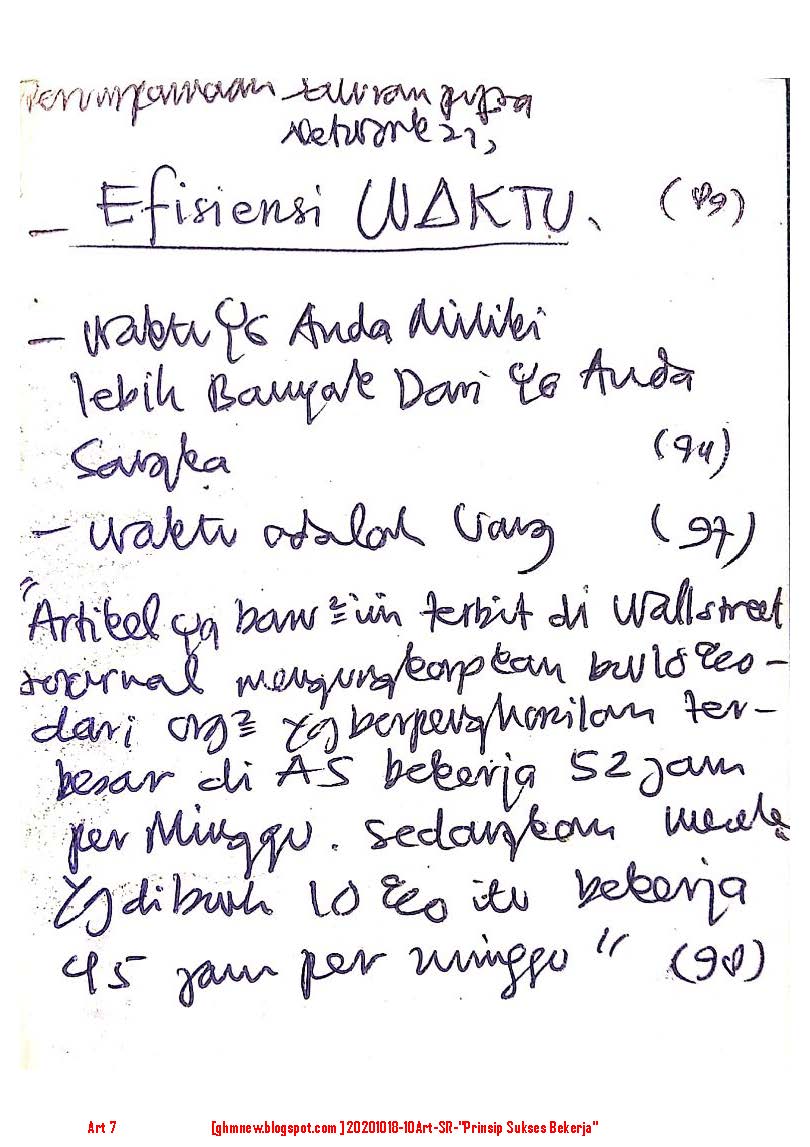 Network 21,
- Efisiensi WAKTU. (89)
- Waktu Yg Anda Miliki
lebih Banyak Dari Yg Anda
Sangka (94)
- Waktu adalah Uang (97)
"Artikel yg baru2 ini terbit di Wallstreet
Journal mengungkapkan bw 10 % -
dari org2 yg berpenghasilan ter-
besar di AS bekerja 52 jam
per Minggu. sedangkan
Yg dibwh 10 % itu bekerja
45 jam per minggu" (98)
Art 7 [ghmnew.blogspot.com ]20201018-10Art-SR-"Prinsip Sukses Bekerja"